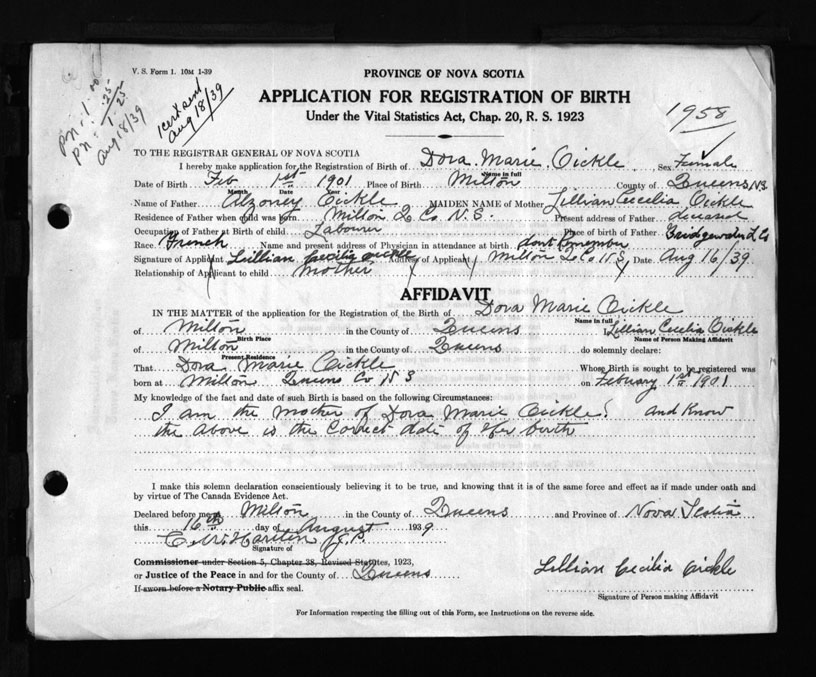 V. S. Form 1. 10M 1-39
PN - 1.00
.25
PN - 1.25
Aug 18/39
Cert sent
Aug 18/39
PROVINCE OF NOVA SCOTIA
APPLICATION FOR REGISTRATION OF BIRTH
Under the Vital Statistics Act, Chap. 20, R. S. 1923
1958
TO THE REGISTRAR GENERAL OF NOVA SCOTIA
I hereby make application for the Registration of Birth of Dora Marie Oickle Sex Female
Name in full
Date of Birth Feb 1st 1901 Place of Birth Milton County of Queens N.S
Month Date Year
Name of Father Oickle MAIDEN NAME of Mother Lillian Cecilia Oickle
Residence of Father when child was born Milton Q Co N.S. Present address of Father deceased
Occupation of Father at Birth of child Labourer Place of birth of Father Bridgewater L Co
Race French Name and present address of Physician in attendance at birth dont Remember
Signature of Applicant Lillian Cecilia Oickle Address of Applicant Milton Q Co N S Date Aug 16/39
Relationship of Applicant to child Mother
AFFIDAVIT
IN THE MATTER of the application for the Registration of the Birth of Dora Marie Oickle
Name in full
of Milton in the County of Queens I, Lillian Cecilia Oickle
Birth Place Name of Person Making Affidavit
of Milton in the County of Queens do solemnly declare:
Present Residence
That Dora Marie Oickle Whose Birth is sought to be registered was
born at Milton Queens Co N S on February 1st 1901
My knowledge of the fact and date of such Birth is based on the following Circumstances:
I am the Mother of Dora Marie Oickle and Know
the above is the Correct date of Her birth
I make this solemn declaration conscientiously believing it to be true, and knowing that it is of the same force and effect as if made under oath and
by virtue of The Canada Evidence Act.
Declared before me at Milton in the County of Queens and Province of Nova Scotia
this 16th day of August 1939
J.P.
Signature of
Commissioner under Section 5, Chapter 38, Revised Statutes, 1923,
or Justice of the Peace in and for the County of Queens
If sworn before a Notary Public affix seal.
Lillian Cecilia Oickle
Signature of Person making Affidavit
For Information respecting the filling out of this Form, see Instructions on the reverse side.